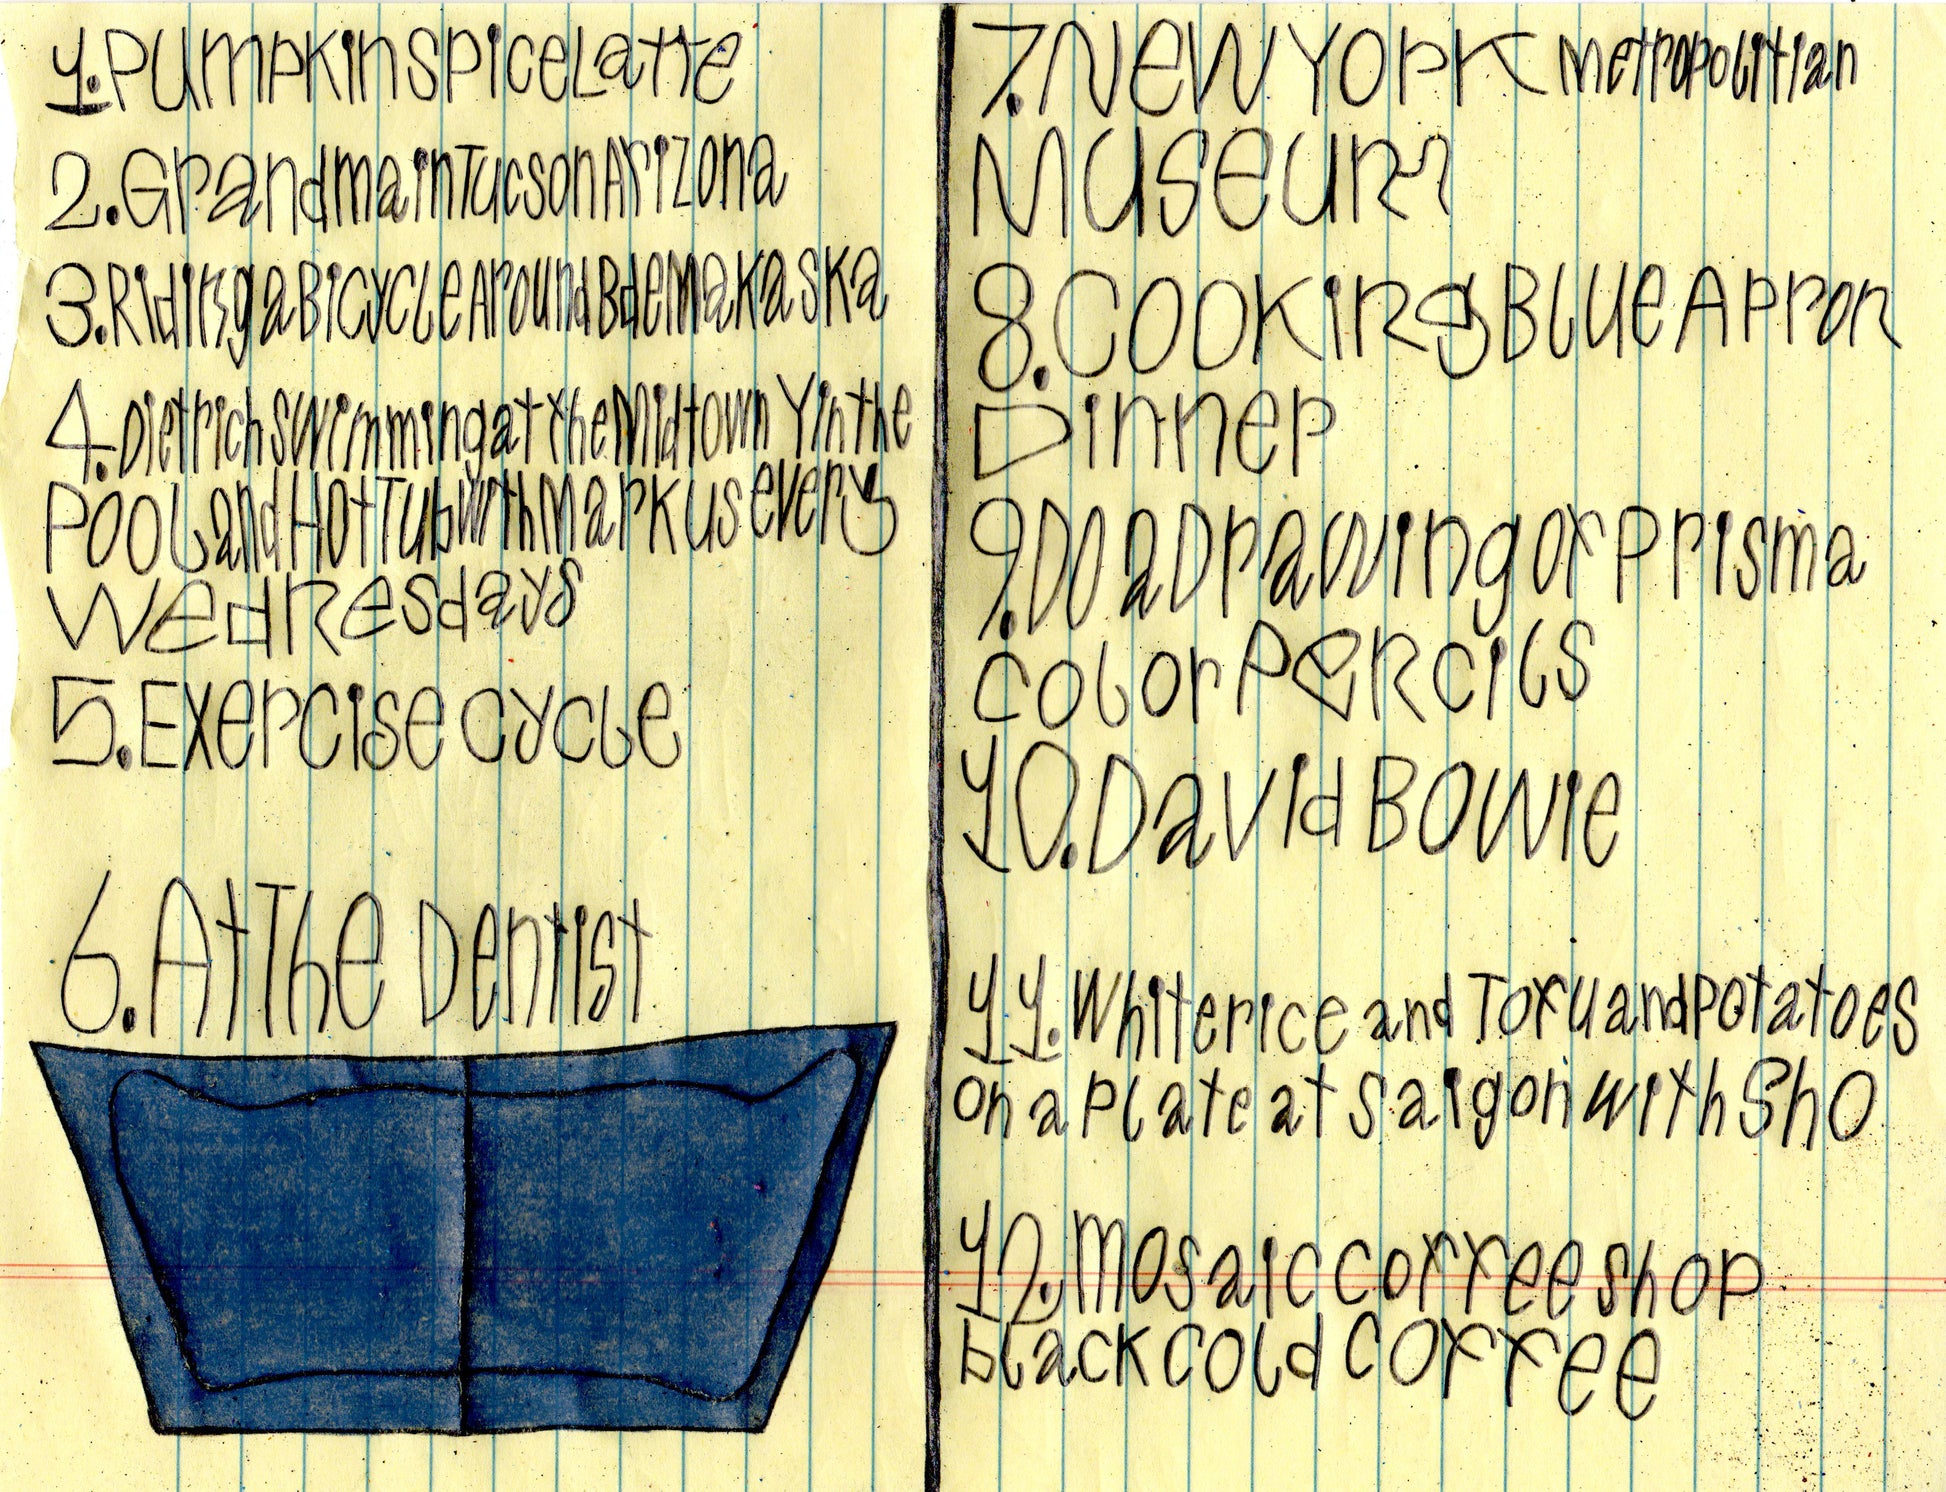 1. Pumpkin Spice Latte
2. Grandma in Tucson Arizona
3. Riding a Bicycle Around Bde Maka Ska
4. Dietrich Swimming at the Midtown Y in the
Pool and Hot Tub with Markus every
Wednesdays
5. Exercise cycle
6. At The Dentist
7. New York Metropolitian
Museum
8. Cooking Blue Apron
Dinner
9. Do a Drawing of Prisma
Color Pencils
10. David Bowie
11. White rice and Tofu and Potatoes
on a Plate at Saigon with Sho
12. Mosaic coffee shop
black cold coffee